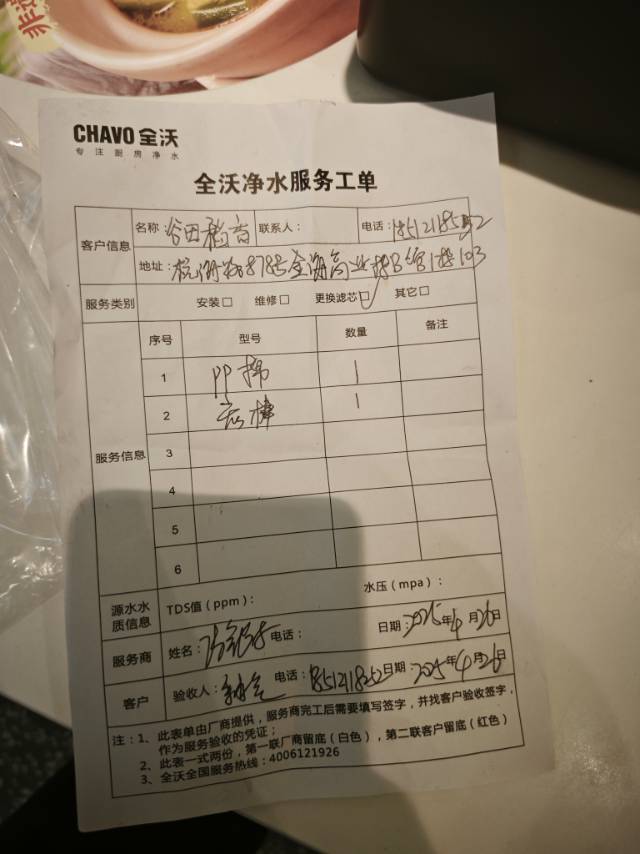 CHAVO 全沃
专注厨房净水
全沃净水服务工单
客户信息
名称 谷田稻香 联系人： 电话：
地址：
服务类别 安装□ 维修□ 更换滤芯☑ 其它□
服务信息
序号 型号 数量 备注
1 PP棉 1
2 碳棒 1
3
4
5
6
源水水质信息
TDS值（ppm）： 水压（mpa）：
服务商 姓名： 电话： 日期：2025年4月26日
客户 验收人： 电话： 日期：2025年4月26日
注：1、此表单由厂商提供，服务商完工后需要填写签字，并找客户验收签字，
作为服务验收的凭证；
2、此表一式两份，第一联厂商留底（白色），第二联客户留底（红色）
3、全沃全国服务热线：4006121926